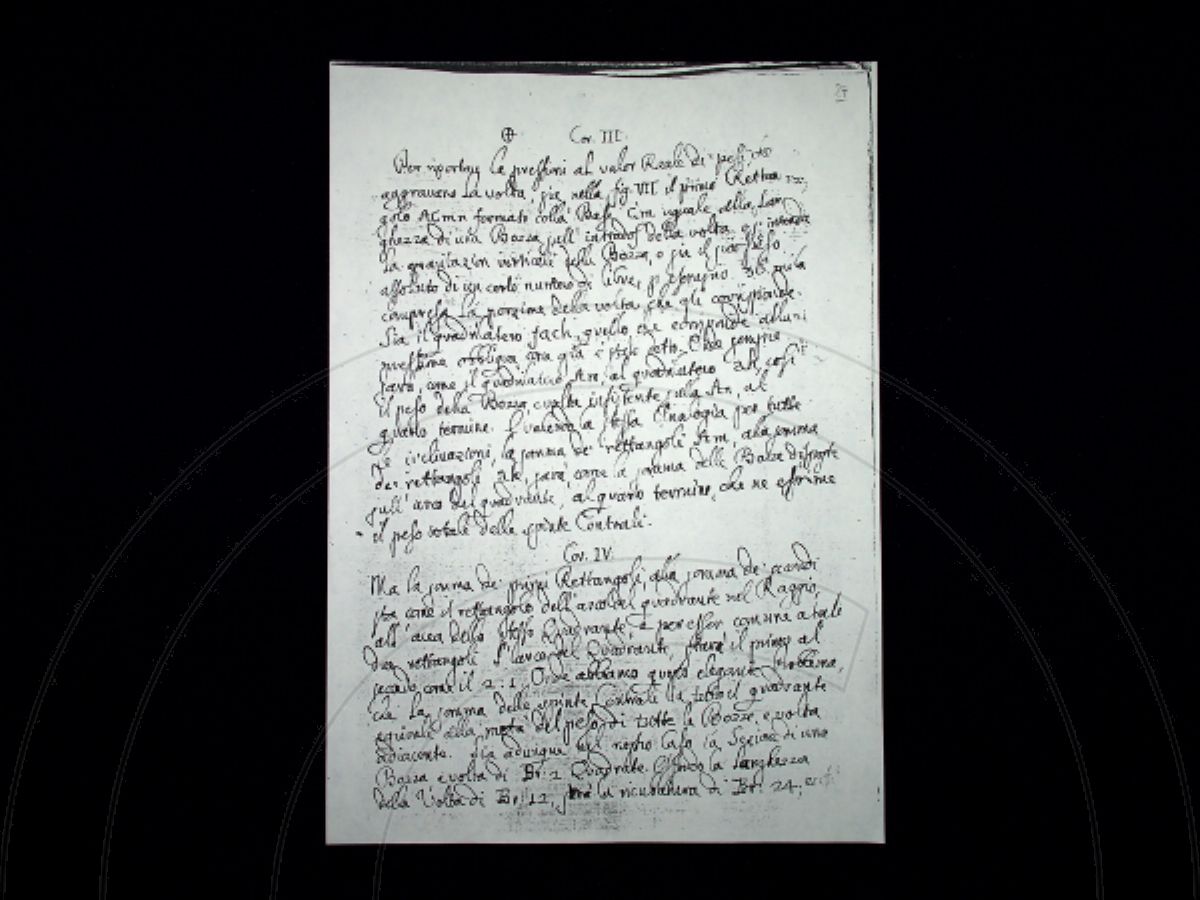 27
Cor. III.
Per riportar le pressioni al valor Reale di pesi che
aggravano la volta, sia nella fig. VII il primo Rettan
golo ACmn formato colla Base Cm uguale della Lar
ghezza di una Bozza sull' intrados della volta
la gravitazion verticale della Bozza, o sia il suo Peso
assoluto di un certo numero di libre,
compresa la porzione della volta che gli corrisponde.
Sia il quadrilatero fach, quello che
pressione obliqua già è Onde sempre
sarà, come il quadrilatero Am, al quadrilatero ah, così
il peso della Bozza e volta insistente sulla An, al
quarto termine. E valendo la stessa Analogia per tutte
le inclinazioni, la somma de' rettangoli Am, alla somma
dei rettangoli ah, sarà come la somma delle Bozze disposte
sull' arco del quadrante, al quarto termine, che ne esprime
il peso totale delle spinte Centrali.
Cor. IV.
Ma la somma de' primi Rettangoli, alla somma de' secondi
sta come il rettangolo dell' arco del quadrante nel Raggio,
all' area dello stesso Quadrante, e per esser comune a tale
due rettangoli l' arco del Quadrante, starà il primo al
secondo come il 2 : 1. Onde abbiamo questo elegante
che la somma delle spinte Centrali in tutto il quadrante
equivale alla metà del peso di tutte le Bozze, e volta
adiacente. Sia adunque nel nostro Caso la di una
Bozza e volta di Br: 2 Quadrate. Essendo la Larghezza
della Volta di Br: 12, sarà la di Br: 24,